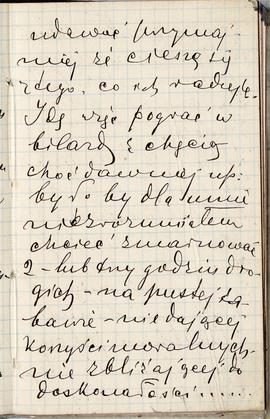 udawać przynaj-
mniej że cieszę się
z tego, co ich raduje.
Idę więc pograć w
bilard z chęcią
choć dawniej np.
było by dla mnie
niezrozumiałem
chcieć zmarnować
2 - lub trzy godzin dro-
gich - na pustej za-
bawie - nie dającej
korzyści moralnych-
nie zbliżającej do
doskonałości.....